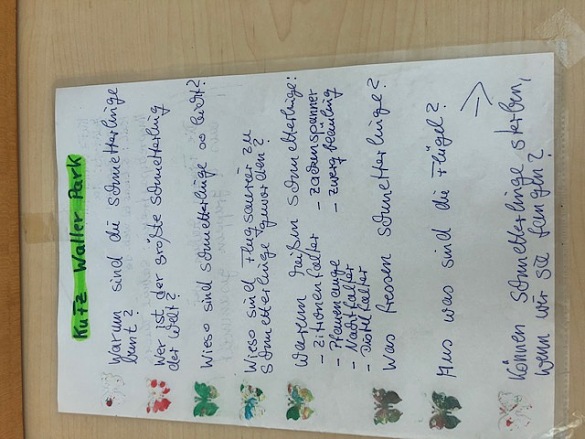 KuTz Waller Park
Warum sind die Schmetterlinge
bunt?
Wer ist der größte Schmetterling
der Welt?
Wieso sind Schmetterlinge so leicht?
Wieso sind Flugsaurier zu
Schmetterlinge geworden?
Warum heißen Schmetterlinge:
- Zitronenfalter - Zackenspanner
- Pfauenauge - Zwergbläuling
- Nachtfalter
- Distelfalter
Was fressen Schmetterlinge?
Aus was sind die Flügel?
Können Schmetterlinge sterben,
wenn wir sie fangen?